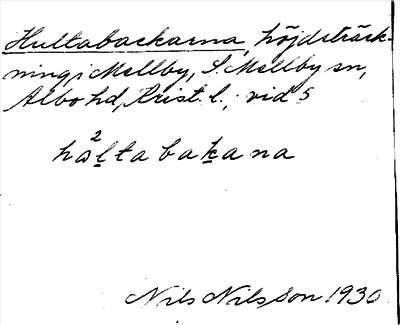 Hultabackarna, höjdsträck-
ning i Mellby, S. Mellby sn,
Albo hd, Krist. l., vid 5
2
hɷltabakana
Nils Nilsson 1930